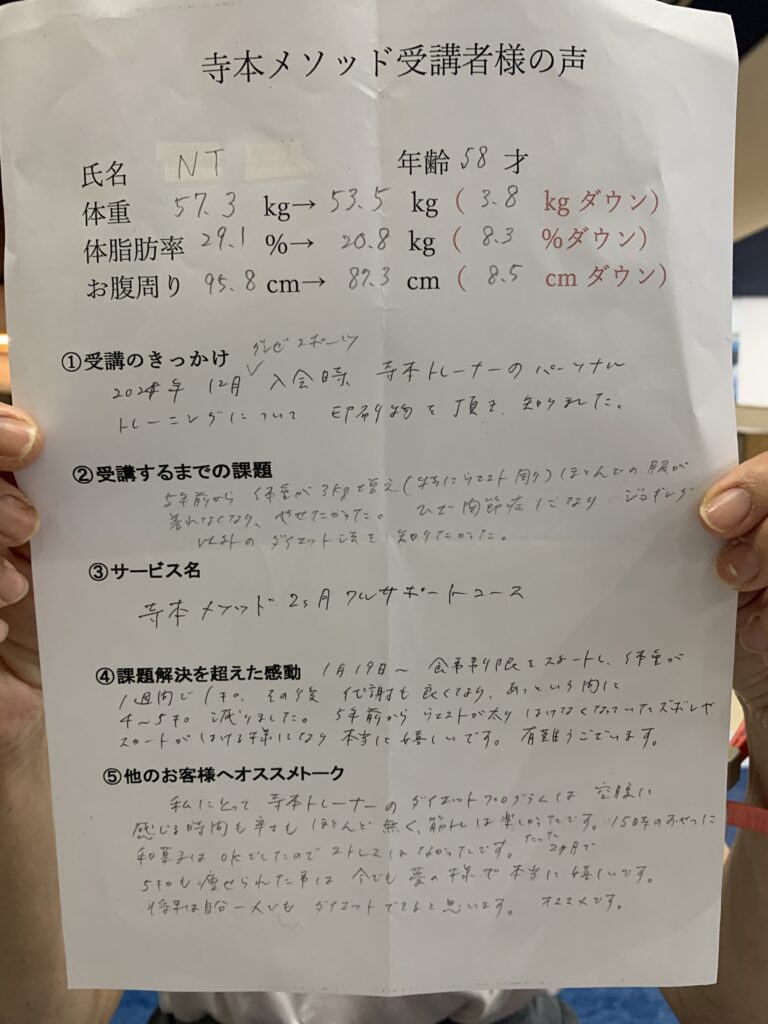 寺本メソッド受講者様の声
氏名 NT 年齢 58 才
体重 57.3 kg→ 53.5 kg ( 3.8 kg ダウン)
体脂肪率 29.1 %→ 20.8 kg ( 8.3 %ダウン)
お腹周り 95.8 cm→ 87.3 cm ( 8.5 cm ダウン)
①受講のきっかけ
2024年 12月 入会時 寺本トレーナーの パーソナル
トレーニングについて 印刷物を頂き、知りました。
②受講するまでの課題
5年前から 体重が 3kg増え(特にウエスト周り)ほとんどの服が
着れなくなり、やせたかった。 ひざ関節症になり ジョギング
以外の ダイエット法を 知りたかった。
③サービス名
寺本メソッド 2ヶ月 フルサポートコース
④課題解決を超えた感動 1月19日〜 食事制限をスタートし、体重が
1週間で 1キロ、その後 代謝も良くなり、あっという間に
4〜5キロ 減りました。 5年前から ウエストが太り はけなくなっていたズボンや
スカートがはける様になり 本当に嬉しいです。有難うございます。
⑤他のお客様へオススメトーク
私にとって 寺本トレーナーの ダイエットプログラムは 空腹に
感じる時間も辛さも ほとんど無く、筋トレは楽しかったです。15時のおやつに
和菓子は OKでしたので ストレスは なかったです。 たった 2ヶ月で
5キロも 痩せられた事は 今でも 夢の様で 本当に嬉しいです。
将来は自分一人でも ダイエットできると思います。 オススメです。